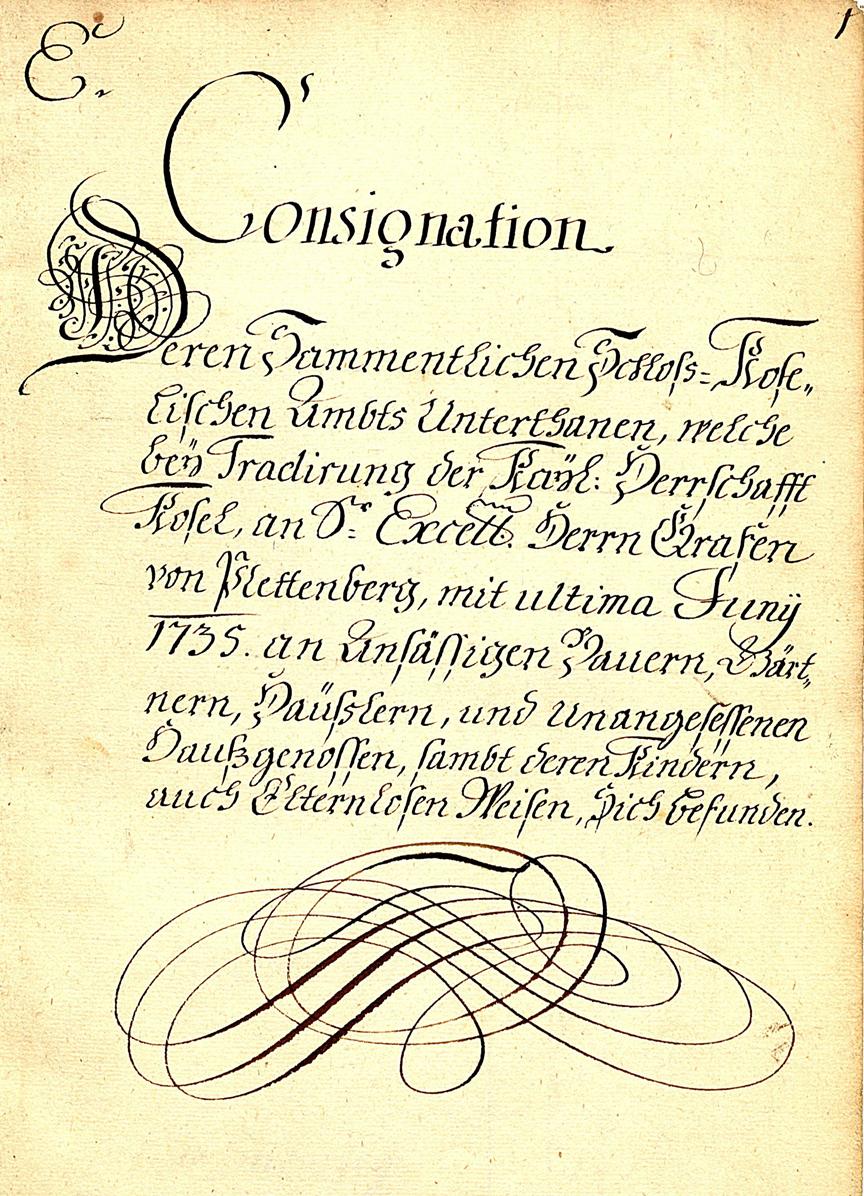 E.
1
Consignation
Deren Sammentlichen Schloss=Kose„
lischen Ambts Unterthanen, welche
beÿ Tradirung der Kaÿl: Herrschafft
Kosel, an Sr. Excell. Herrn Grafen
von Plettenberg, mit ultima Junÿ
1735. an Ansäßigen Bauern, Gärt„
nern, Häüßlern, und Unangesessenen
Haußgenossen, sambt deren Kindern,
auch Elternlosen Weisen, Sich befunden.